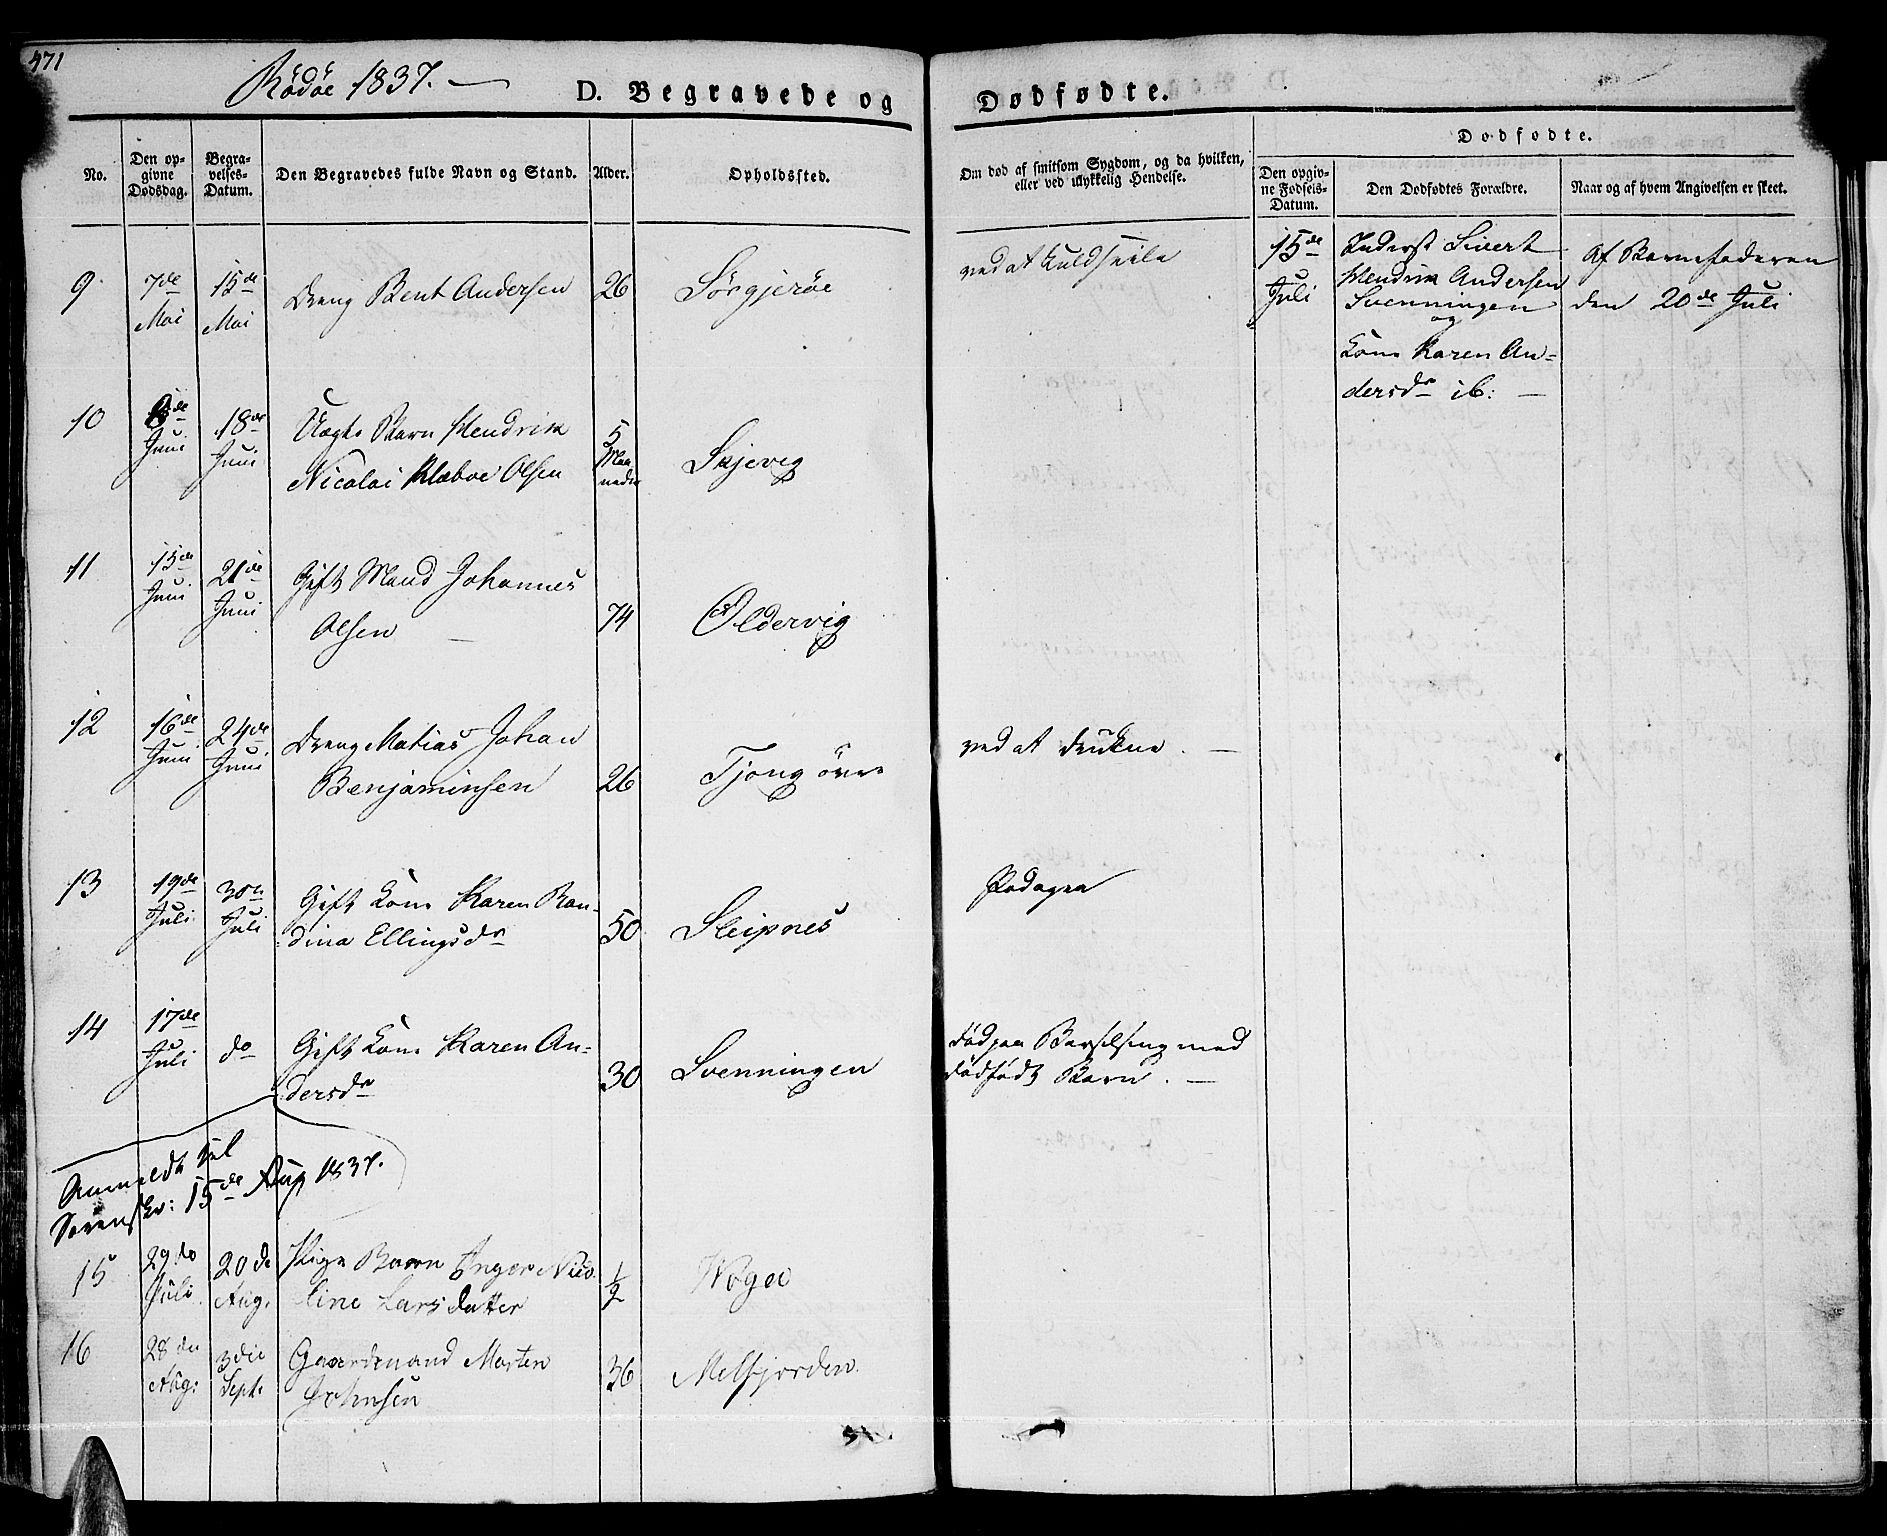 471
Rødøe 1837. —
D. Begravede og Dødfødte.
No.
Den opgivne Dødsdag.
Begravelses-Datum.
Den Begravedes fulde Navn og Stand.
Alder.
Opholdssted.
Om død af smitsom Sygdom, og da hvilken, eller ved ulykkelig Hendelse.
Dødfødte.
Den opgivne Fødsels-Datum.
Den Dødfødtes Forældre.
Naar og af hvem Angivelsen er skeet.
9. 7de Mai 15de Mai Dreng Bent Andersen 26 Sørgjerøe ved at kuldseile
15de Juli
Inderst Sivert
Hendrik Andersen
Svenningen
og
Kone Karen An=
dersdr ib: —
Af Barnefaderen
den 20de Juli
10 8de Juni 18de Juni Uægte Barn Hendrik
Nicolai Klæboe Olsen 5 Maaneder Skjevig
11 15de Juni 21de Juni Gift Mand Johannes
Olsen — 74 Oldervig
12 16de Juni 24de Juni Dreng Matias Johan
Benjaminsen 26 Tjong øvre ved at drukne. —
13 19de Juli 30te Juli Gift Kone Karen Ran=
dina Ellingsdr 50 Sleipnes Podagra
14 17de Juli do Gift Kone Karen An=
dersdr 30 Svenningen død paa Barselseng med
dødfødt Barn. —
Anmeldt til
Sorenskr: 15de Aug 1837.
15 29de Juli 20de Aug. Pige Barn Inger Nico
line Larsdatter 1/2 Vågøe
16 28de Aug: 3die Sept. Gaardmand Morten
Johnsen 36 Melfjorden